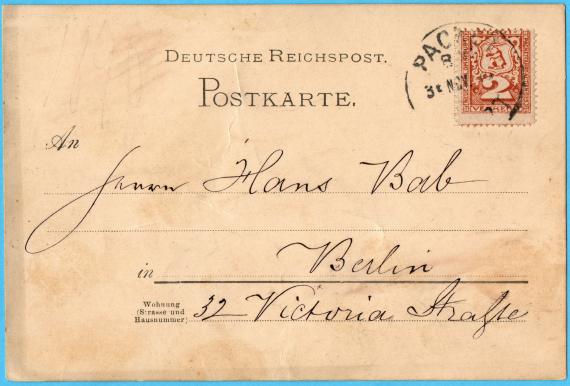 DEUTSCHE REICHSPOST.
POSTKARTE.
PACK
NOV
2
An
Herrn Hans Bab
Berlin
in
Wohnung
(Strasse und
Hausnummer)
32 Victoria Straße